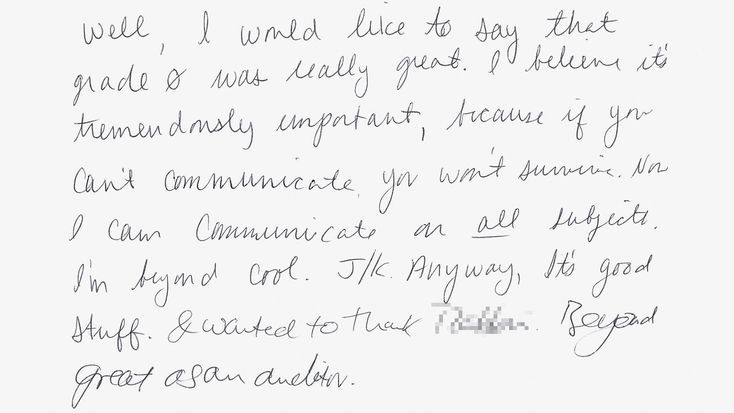 Well, I would like to say that
grade Ø was really great. I believe it's
tremendously important, because if you
can't communicate, you won't survive. Now
I can communicate on all subjects.
I'm beyond cool. J/K. Anyway, It's good
stuff. I wanted to thank . Beyond
great as an auditor.